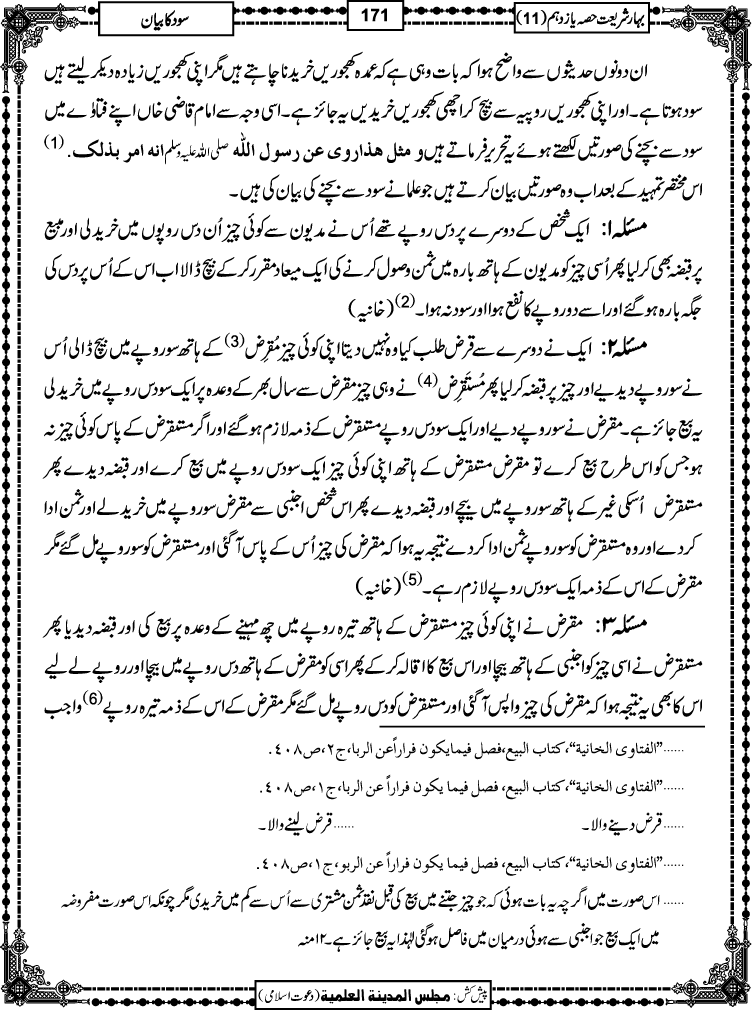 بہار شریعت حصہ یازدہم (11)
171
سود کا بیان
ان دونوں حدیثوں سے واضح ہوا کہ بات وہی ہے کہ عمدہ کھجوریں خریدنا چاہتے ہیں مگر اپنی کھجوریں زیادہ دیکر لیتے ہیں
سود ہوتا ہے۔ اور اپنی کھجوریں روپیہ سے بیچ کر اچھی کھجوریں خریدیں یہ جائز ہے۔ اسی وجہ سے امام قاضی خاں اپنے فتاوٰے میں
سود سے بچنے کی صورتیں لکھتے ہوئے یہ تحریر فرماتے ہیں و مثل هذا روی عن رسول اللّٰه صلی اللہ علیہ وسلم انه امر بذلك . (1)
اس مختصر تمہید کے بعد اب وہ صورتیں بیان کرتے ہیں جو علما نے سود سے بچنے کی بیان کی ہیں۔
مسئلہ ۱: ایک شخص کے دوسرے پر دس روپے تھے اُس نے مدیون سے کوئی چیز اُن دس روپوں میں خرید لی اور مبیع
پر قبضہ بھی کر لیا پھر اُسی چیز کو مدیون کے ہاتھ بارہ میں ثمن وصول کرنے کی ایک میعاد مقرر کر کے بیچ ڈالا اب اس کے اُس پر دس کی
جگہ بارہ ہو گئے اور اسے دو روپے کا نفع ہوا اور سود نہ ہوا۔ (2) (خانیہ)
مسئلہ ۲: ایک نے دوسرے سے قرض طلب کیا وہ نہیں دیتا اپنی کوئی چیز مُقرِض (3) کے ہاتھ سو روپے میں بیچ ڈالی اُس
نے سو روپے دیدیے اور چیز پر قبضہ کر لیا پھر مُستَقرِض (4) نے وہی چیز مقرض سے سال بھر کے وعدہ پر ایک سو دس روپے میں خرید لی
یہ بیع جائز ہے۔ مقرض نے سو روپے دیے اور ایک سو دس روپے مستقرض کے ذمہ لازم ہو گئے اور اگر مستقرض کے پاس کوئی چیز نہ
ہو جس کو اس طرح بیع کرے تو مقرض مستقرض کے ہاتھ اپنی کوئی چیز ایک سو دس روپے میں بیع کرے اور قبضہ دیدے پھر
مستقرض اُسکی غیر کے ہاتھ سو روپے میں بیچے اور قبضہ دیدے پھر اس شخص اجنبی سے مقرض سو روپے میں خرید لے اور ثمن ادا
کر دے اور وہ مستقرض کو سو روپے ثمن ادا کر دے نتیجہ یہ ہوا کہ مقرض کی چیز اُس کے پاس آ گئی اور مستقرض کو سو روپے مل گئے مگر
مقرض کے اس کے ذمہ ایک سو دس روپے لازم رہے۔ (5) (خانیہ)
مسئلہ ۳: مقرض نے اپنی کوئی چیز مستقرض کے ہاتھ تیرہ روپے میں چھ مہینے کے وعدہ پر بیع کی اور قبضہ دیدیا پھر
مستقرض نے اسی چیز کو اجنبی کے ہاتھ بیچا اور اس بیع کا اقالہ کر کے پھر اسی کو مقرض کے ہاتھ دس روپے میں بیچا اور روپے لے لیے
اس کا بھی یہ نتیجہ ہوا کہ مقرض کی چیز واپس آ گئی اور مستقرض کو دس روپے مل گئے مگر مقرض کے اس کے ذمہ تیرہ روپے (6) واجب
......"الفتاوی الخانیة"، کتاب البیع، فصل فیما یکون فراراً عن الربا، ج۲، ص۴۰۸.
......"الفتاوی الخانیة"، کتاب البیع، فصل فیما یکون فراراً عن الربا، ج۱، ص۴۰۸.
......قرض دینے والا۔ ......قرض لینے والا۔
......"الفتاوی الخانیة"، کتاب البیع، فصل فیما یکون فراراً عن الربو، ج۱، ص۴۰۸.
......اس صورت میں اگر چہ یہ بات ہوئی کہ جو چیز جتنے میں بیع کی قبل نقد ثمن مشتری سے اُس سے کم میں خریدی مگر چونکہ اس صورت مفروضہ
میں ایک بیع جو اجنبی سے ہوئی درمیان میں فاصل ہو گئی لہٰذا یہ بیع جائز ہے۔ ۱۲ منہ
پیش کش: مجلس المدینة العلمیة (دعوت اسلامی)